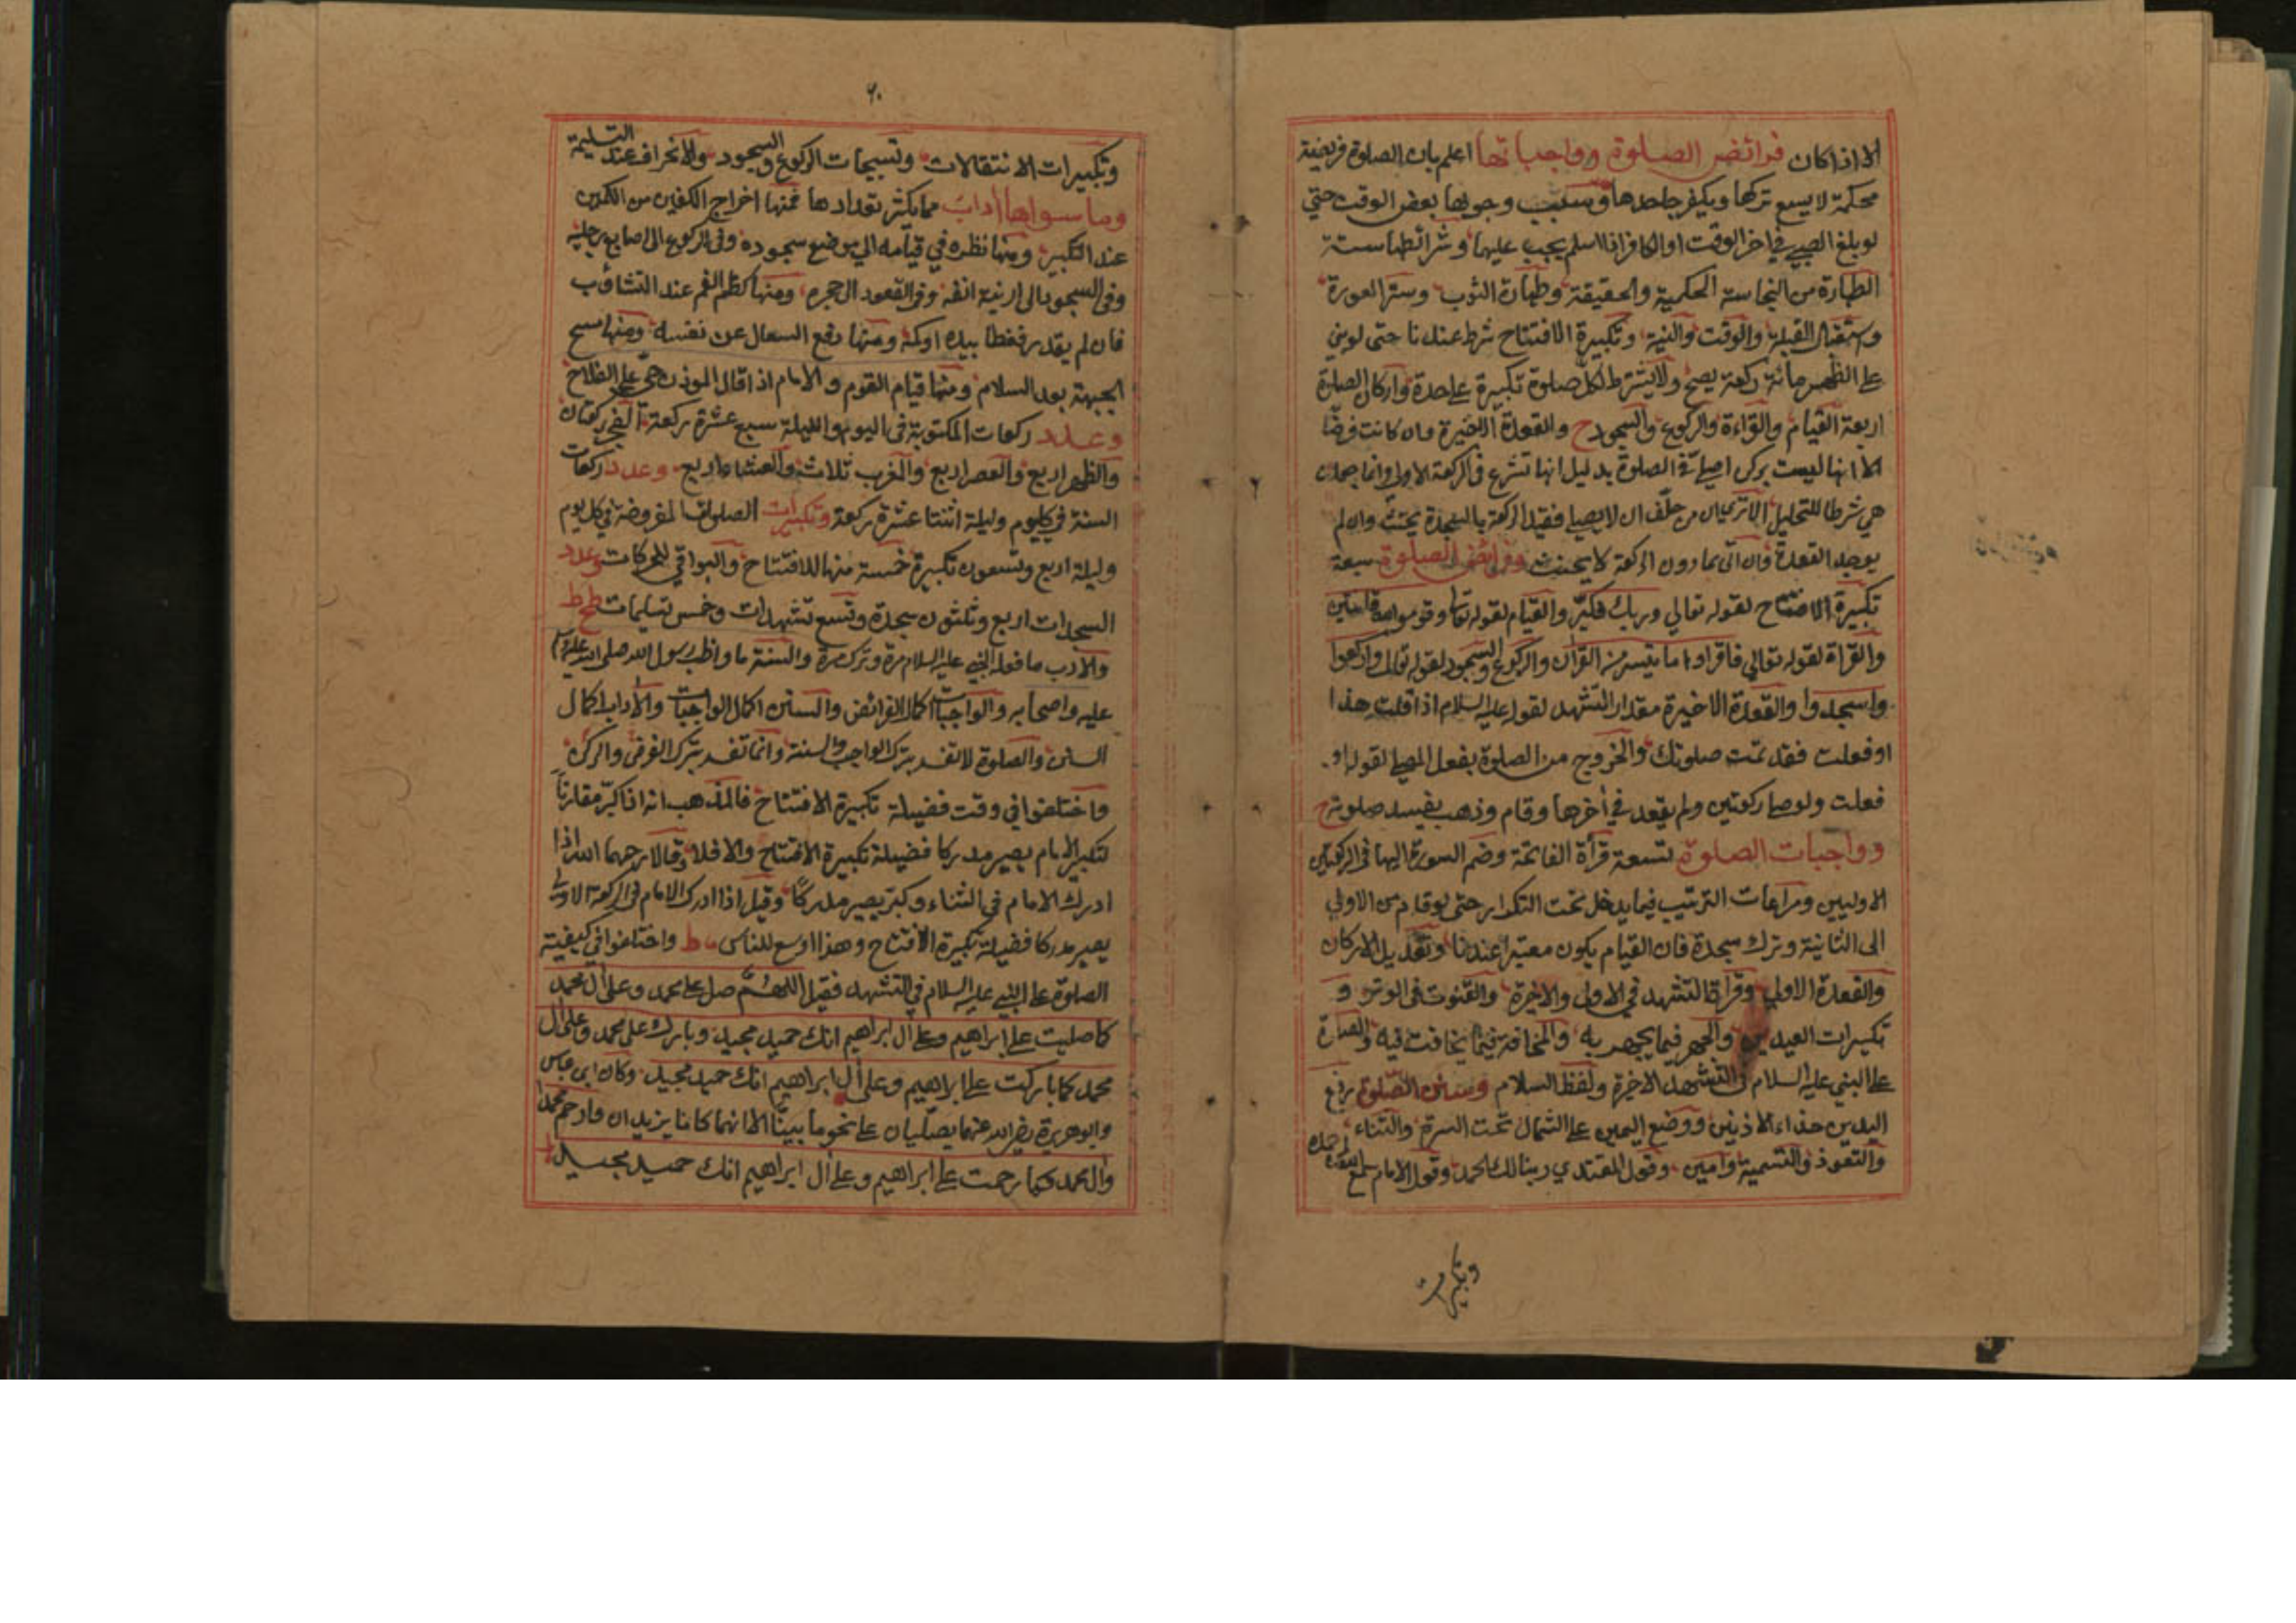 الا اذا كان فرائض الصلوة وواجباتها اعلم بان الصلوة فريضة
محكمة لا يسع تركها ويكفر جاحدها وسبب وجوبها بعض الوقت حتي
لو بلغ الصبي في اخر الوقت او الكافر اذا اسلم يجب عليهما وشرائطها ستة
الطهارة من النجاسة الحكمية والحقيقة وطهارة الثوب وستر العورة
واستقبال القبلة والوقت والنية وتكبيرة الافتتاح شرط عندنا حتى لو بني
على الظهر مائة ركعة يصح ولا يشترط لكل صلوة تكبيرة علىحدة واركان الصلوة
اربعة القيام والقراءة والركوع والسجود ح والقعدة الاخيرة وان كانت فرضا
الا انها ليست بركن اصلي في الصلوة بدليل انها تشرع في الركعة الاولى وانما جعلت
هي شرطا للتحليل الا تري ان من حلف ان لا يصلي فقيد الركعة بالسجدة يحنث وان لم
يوجد القعدة فان اتى بما دون الركعة لا يحنث وفرائض الصلوة سبعة
تكبيرة الافتتاح لقوله تعالي وربك فكبر والقيام لقوله تعا وقوموا لله قانتين
والقراة لقوله تعالي فاقراوا ما يتسر من القران والركوع والسجود لقوله تعالى واركعوا
واسجدوا والقعدة الاخيرة مقدار التشهد لقوله عليه السلام اذا قلت هذا
او فعلت فقد تمت صلوتك والخروج من الصلوة بفعل المصلي لقوله او
فعلت ولو صلى ركعتين ولم يقعد في أخرها وقام وذهب يفسد صلوته ح
وواجبات الصلوة تسعة قرأة الفاتحة وضم السورة اليها في الركعتين
الاوليين ومراعات الترتيب فيما يدخل تحت التكرار حتى لو قام من الاولي
الى الثانية وترك سجدة فان القيام يكون معتبرا عندنا وتعديل الاركان
والقعدة الاولي وقرأة التشهد في الاولى والاخيرة والقنوت في الوتر و
تكبيرات العيدين والجهر فيما يجهر به والمخافتة فيما يخافت فيه والصلوة
على النبي عليه السلام في التشهد الاخيرة ولفظ السلام وسنن الصلوة رفع
اليدين حذاء الاذنين ووضع اليمين على الشمال تحت السرة والثناء
والتعوذ والتسمية وامين وقول المقتدي ربنا لك الحمد وقول الامام سمع الله لمن حمده
وتكبيرات
٦٠
وتكبيرات الانتقالات وتسبيحات الركوع والسجود والانحراف عند التسليمة
وما سواها أداب مما يكثر تعدادها فمنها اخراج الكفين من الكمين
عند التكبير ومنها نظره في قيامه الي موضع سجوده وفي الركوع الى اصابع رجليه
وفي السجود الى ارنبة انفه وفي القعود الى حجره ومنها كظم الفم عند التثاؤب
فان لم يقدر فغطا بيده او كمه ومنها دفع السعال عن نفسه ومنها مسح
الجبهة بعد السلام ومنها قيام القوم والامام اذا قال الموذن حي على الفلاح
وعدد ركعات المكتوبة في اليوم والليلة سبع عشرة ركعة الفجر ركعتان
والظهر اربع والعصر اربع والمغرب ثلاث والعشاء اربع وعدد ركعات
السنة في كل يوم وليلة اثنتا عشرة ركعة وتكبيرات الصلوة المفروضة في كل يوم
وليلة اربع وتسعون تكبيرة خمسة منها للافتتاح والبواقي للحركات وعدد
السجدات اربع وثلثون سجدة وتسع تشهدات وخمس تسليمات ط
والادب ما فعله النبي عليه السلام مرة وتركه مرة والسنة ما واظب رسول الله صلى الله عليه
عليه واصحابه والواجبات اكمال الفرائض والسنن اكمال الواجبات والأداب اكمال
السنن والصلوة لا تفسد بترك الواجب والسنة وانما تفسد بترك الفرض والركن
واختلفوا في وقت فضيلة تكبيرة الافتتاح فالمذهب انه اذا كبر مقارنا
لتكبير الامام يصير مدركا فضيلة تكبيرة الافتتاح والا فلا وقالا رحمهما الله اذا
ادرك الامام في الثناء وكبر يصير مدركا وقيل اذا ادرك الامام في الركعة الاولى
يصير مدركا فضيلة تكبيرة الافتتاح وهذا اوسع للناس واختلفوا في كيفية
الصلوة على النبي عليه السلام في التشهد فقيل اللهم صل على محمد وعلى أل محمد
كما صليت على ابراهيم وعلى أل ابراهيم انك حميد مجيد وبارك على محمد وعلى أل
محمد كما باركت على ابراهيم وعلى أل ابراهيم انك حميد مجيد وكان ابن عباس
وابو هريرة رضي الله عنهما يصليان على نحو ما بينا الا انهما كانا يزيدان وارحم محمدا
وال محمد كما رحمت على ابراهيم وعلى أل ابراهيم انك حميد مجيد